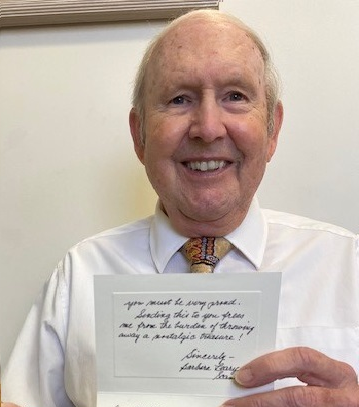 you must be very proud.
Sending this to you frees
me from the burden of throwing
away a nostalgic treasure!
Sincerely –
Barbara